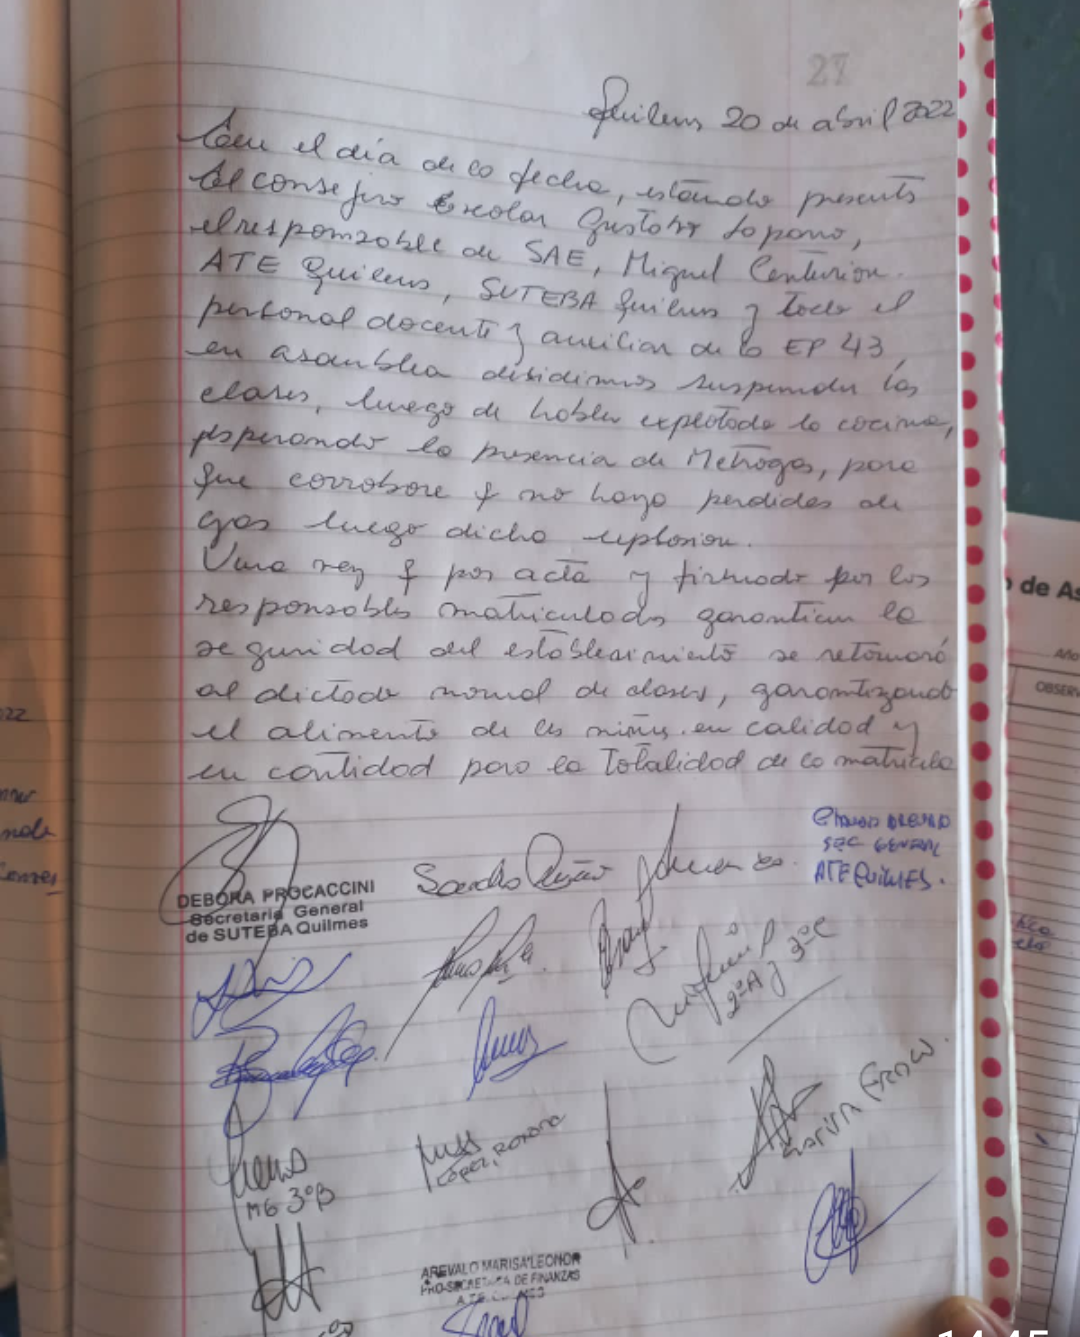 27
Quilmes 20 de abril 2022
Con el día de la fecha, estando presents
el consejero Escolar Gustavo Lopano,
el responsable de SAE, Miguel Centurion.
ATE Quilmes, SUTEBA Quilmes y todo el
personal docente y auxiliar de la EP 43,
en asamblea disidimos suspender las
clases, luego de haber explotado la cocina,
esperando la presencia de Metrogas, para
que corrobore q no haya perdidas de
gas luego dicha explosion.
Una vez q por acta y firmado por los
responsables matriculados garanticen la
seguridad del establecimiento se retomará
al dictado normal de clases, garantizando
el alimento de les niñxs en calidad y
en cantidad para la totalidad de la matricula
DEBORA PROCACCINI
Secretaria General
de SUTEBA Quilmes
Sandro
SEC GENERAL
ATE QUILMES.
2ºA y 3ºC
MG 3ºB
LOPEZ, ROXANA
AREVALO MARISA LEONOR
PRO-SECRETARIA DE FINANZAS
de As
Año
OBSERV
022
14:45